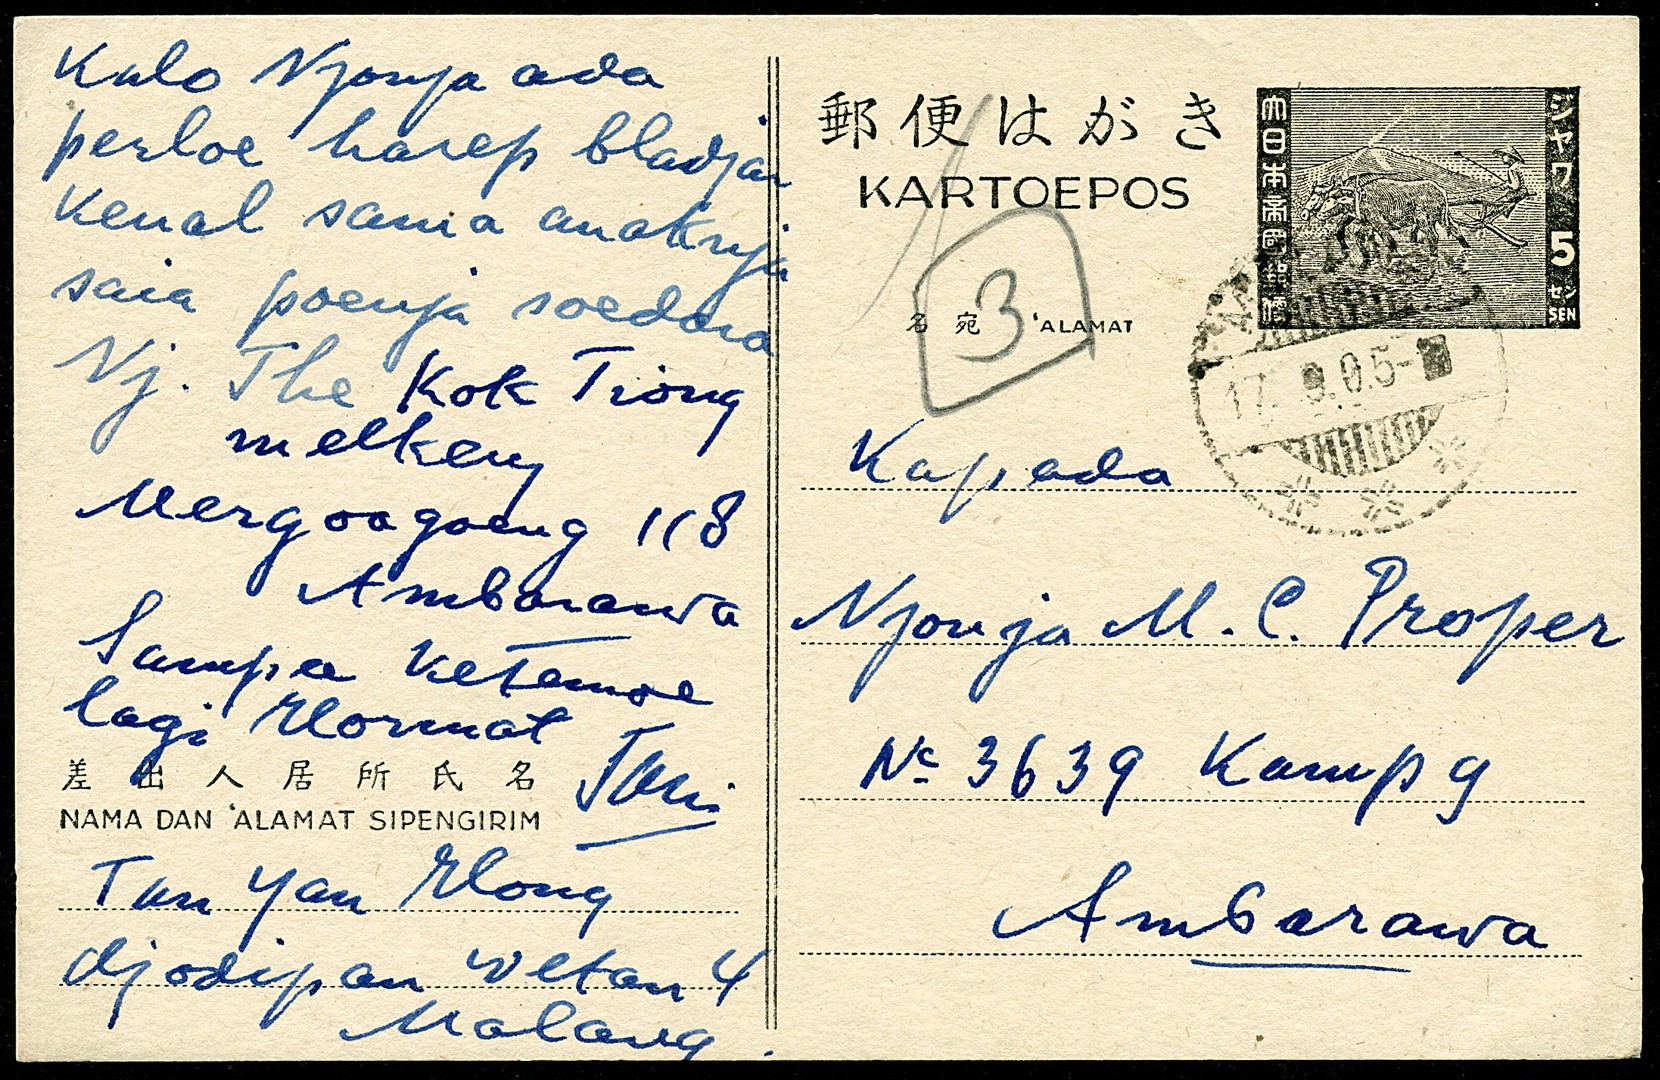 Kalo Njonja ada
perloe harep bladjar
Kenal sama anaknja
saia poenja soedara
Nj. The Kok Tiong
melkerij
Mergoagoeng 118
Ambarawa
Sampe Ketemoe
lagi Hormat
差出人居所氏名
NAMA DAN 'ALAMAT SIPENGIRIM
Tan Yan Hong
djodipan wetan 4
Malang.
郵便はがき
KARTOEPOS
大日本帝國郵便
ジャワ
5
セン
SEN
3
名宛 'ALAMAT
17. 9.05-
Kapada
Njonja M. C. Proper
No 3639 Kampg
Ambarawa